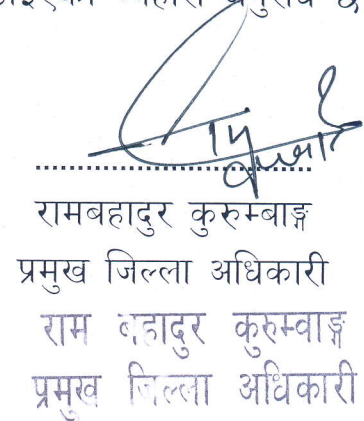 रामबहादुर कुरुम्बाङ्ग
प्रमुख जिल्ला अधिकारी
राम बहादुर कुरुम्वाङ्ग
प्रमुख जिल्ला अधिकारी